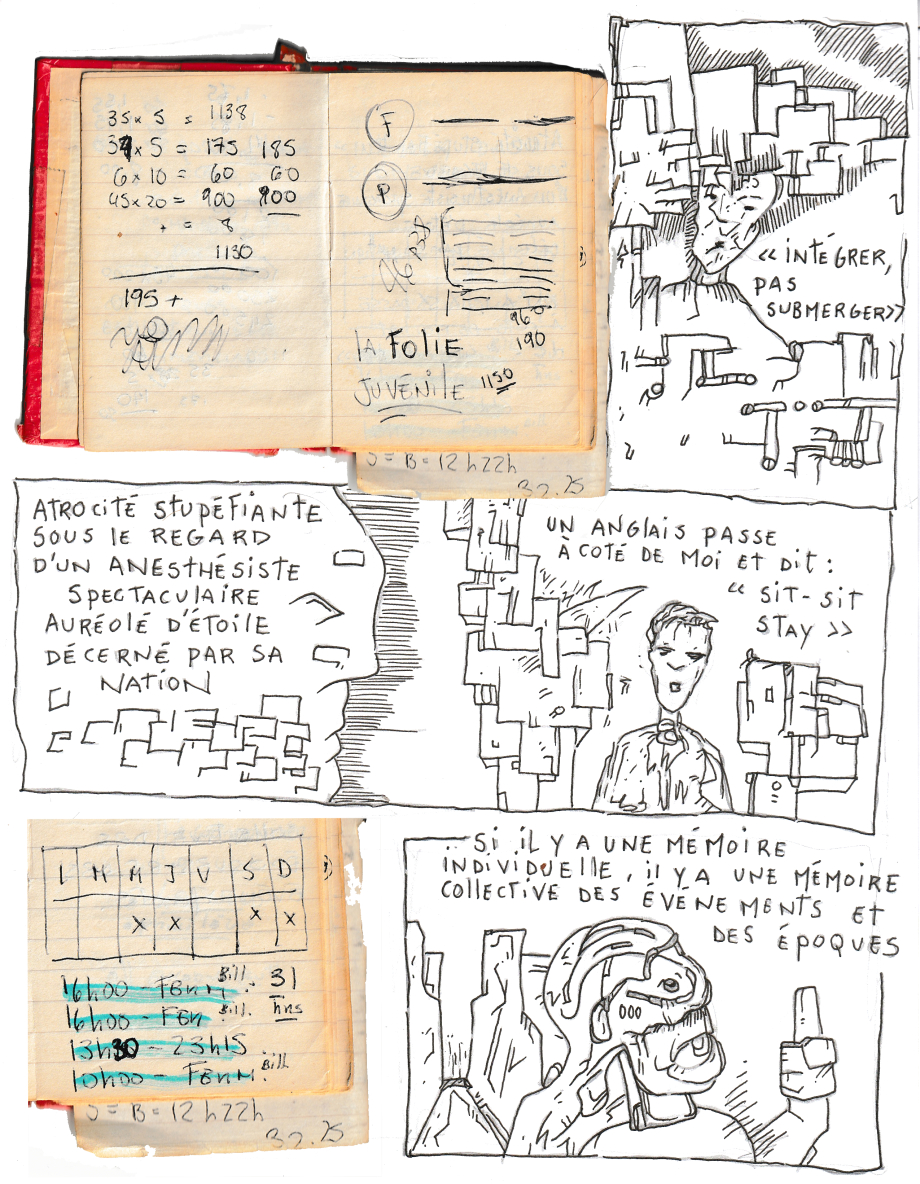 35 x 5 = 1138
37 x 5 = 175 185
6 x 10 = 60 60
45 x 20 = 900 900
+ = 8
1130
195 +
F
P
960
LA FOLIE 190
JUVÉNILE 1150
S = B = 12 h 22h
32.75
« INTÉGRER,
PAS
SUBMERGER»
ATROCITÉ STUPÉFIANTE
SOUS LE REGARD
D'UN ANESTHÉSISTE
SPECTACULAIRE
AURÉOLÉ D'ÉTOILE
DÉCERNÉ PAR SA
NATION
UN ANGLAIS PASSE
À COTÉ DE MOI ET DIT :
« SIT-SIT
STAY »
L M M J V S D
X X X X
16h00 - FERM Bill. 31
16h00 - FER Bill. hrs
13h30 - 23h15
10h00 - FERM. Bill
S = B = 12 h 22h
32.75
SI IL Y A UNE MÉMOIRE
INDIVIDUELLE, IL Y A UNE MÉMOIRE
COLLECTIVE DES ÉVÉNEMENTS ET
DES ÉPOQUES